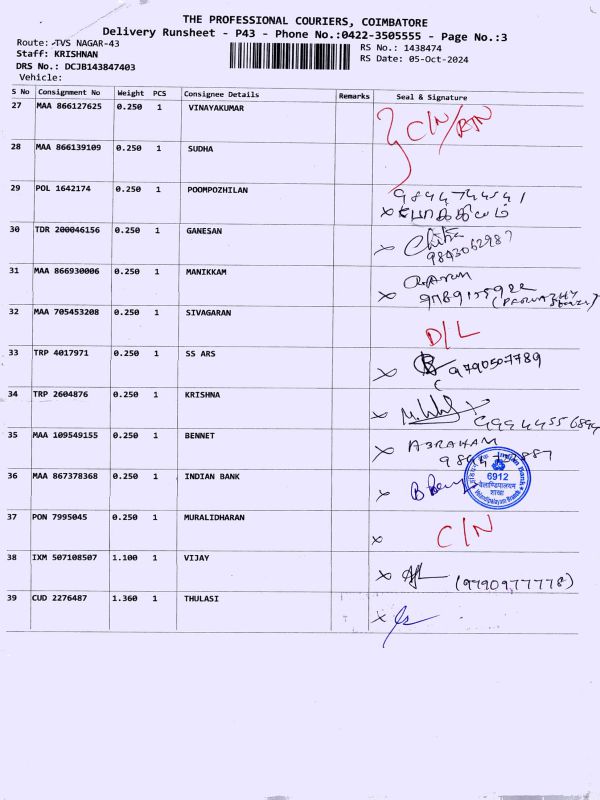 THE PROFESSIONAL COURIERS, COIMBATORE
Delivery Runsheet - P43 - Phone No.:0422-3505555 - Page No.:3
Route: TVS NAGAR-43
Staff: KRISHNAN
DRS No.: DCJB143847403
Vehicle:
RS No.: 1438474
RS Date: 05-Oct-2024
S No Consignment No Weight PCS Consignee Details Remarks Seal & Signature
27 MAA 866127625 0.250 1 VINAYAKUMAR C/N/RTN
28 MAA 866139109 0.250 1 SUDHA
29 POL 1642174 0.250 1 POOMPOZHILAN
30 TDR 200046156 0.250 1 GANESAN
9843062987
31 MAA 866930006 0.250 1 MANIKKAM
32 MAA 705453208 0.250 1 SIVAGARAN D/L
33 TRP 4017971 0.250 1 SS ARS 9790507789
34 TRP 2604876 0.250 1 KRISHNA
35 MAA 109549155 0.250 1 BENNET ABRAHAM
36 MAA 867378368 0.250 1 INDIAN BANK
Indian Bank
6912
वेलाण्डिपालयम
शाखा
Velandipalayam Branch
37 PON 7995045 0.250 1 MURALIDHARAN C/N
38 IXM 507108507 1.100 1 VIJAY (9790977778)
39 CUD 2276487 1.360 1 THULASI